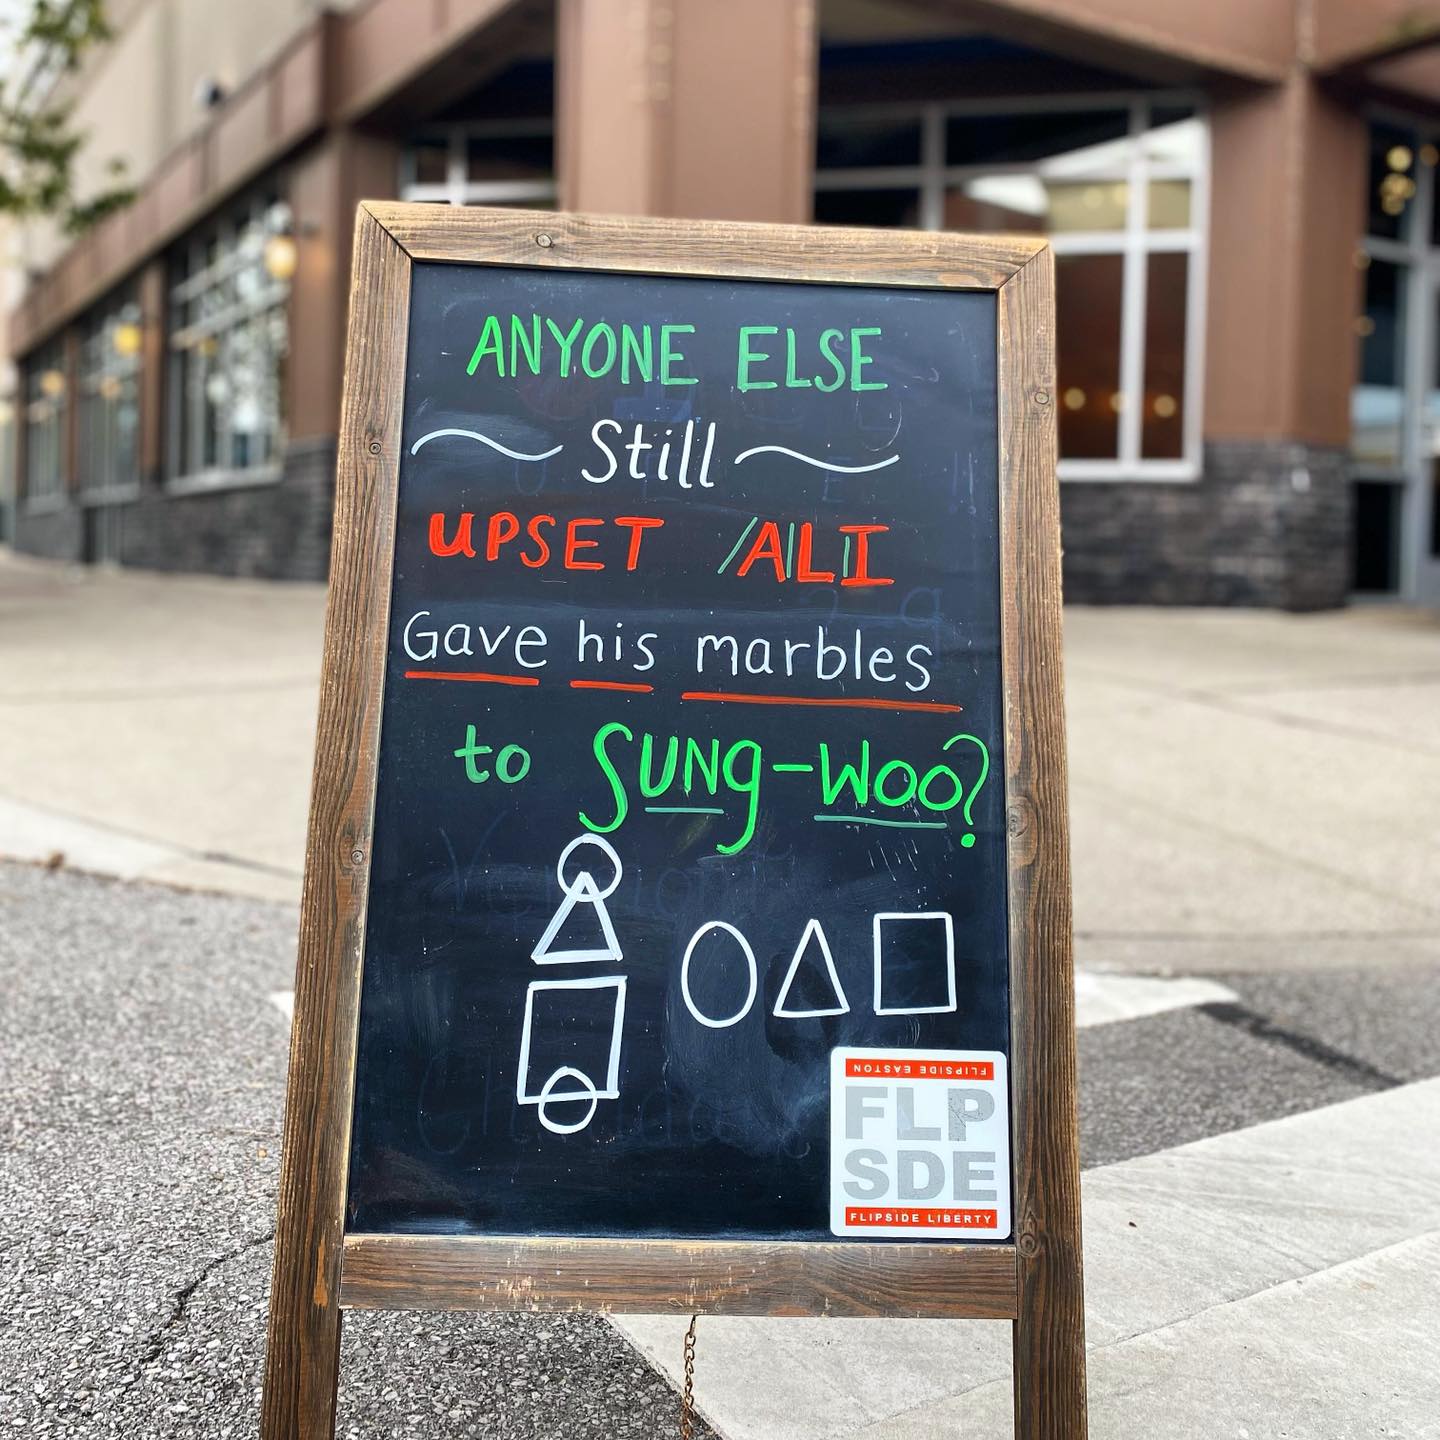 ANYONE ELSE
Still
UPSET ALI
Gave his marbles
to Sung-Woo?
FLIPSIDE EASTON
FLP
SDE
FLIPSIDE LIBERTY